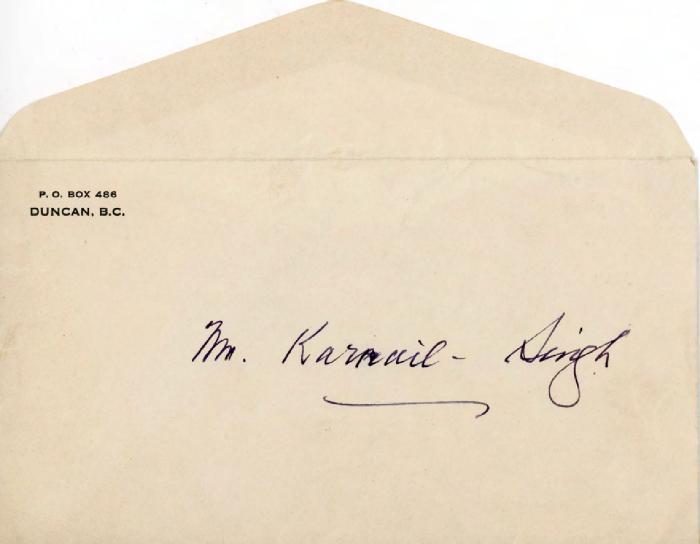 P. O. BOX 486
DUNCAN, B.C.
Mr. Karnail - Singh